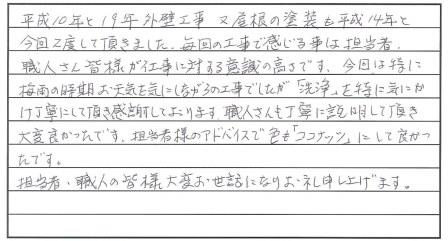 平成10年と19年外壁工事 又屋根の塗装も平成14年と
今回2度して頂きました。毎回の工事で感じる事は担当者、
職人さん皆様が工事に対する意識の高さです。今回は特に
梅雨の時期お天気を気にしながらの工事でしたが「洗浄」を特に気にか
け丁寧にして頂き感謝しております。職人さんも丁寧に説明して頂き
大変良かったです。担当者様のアドバイスで色も「ココナッツ」にして良かっ
たです。
担当者、職人の皆様大変お世話になりお礼申し上げます。